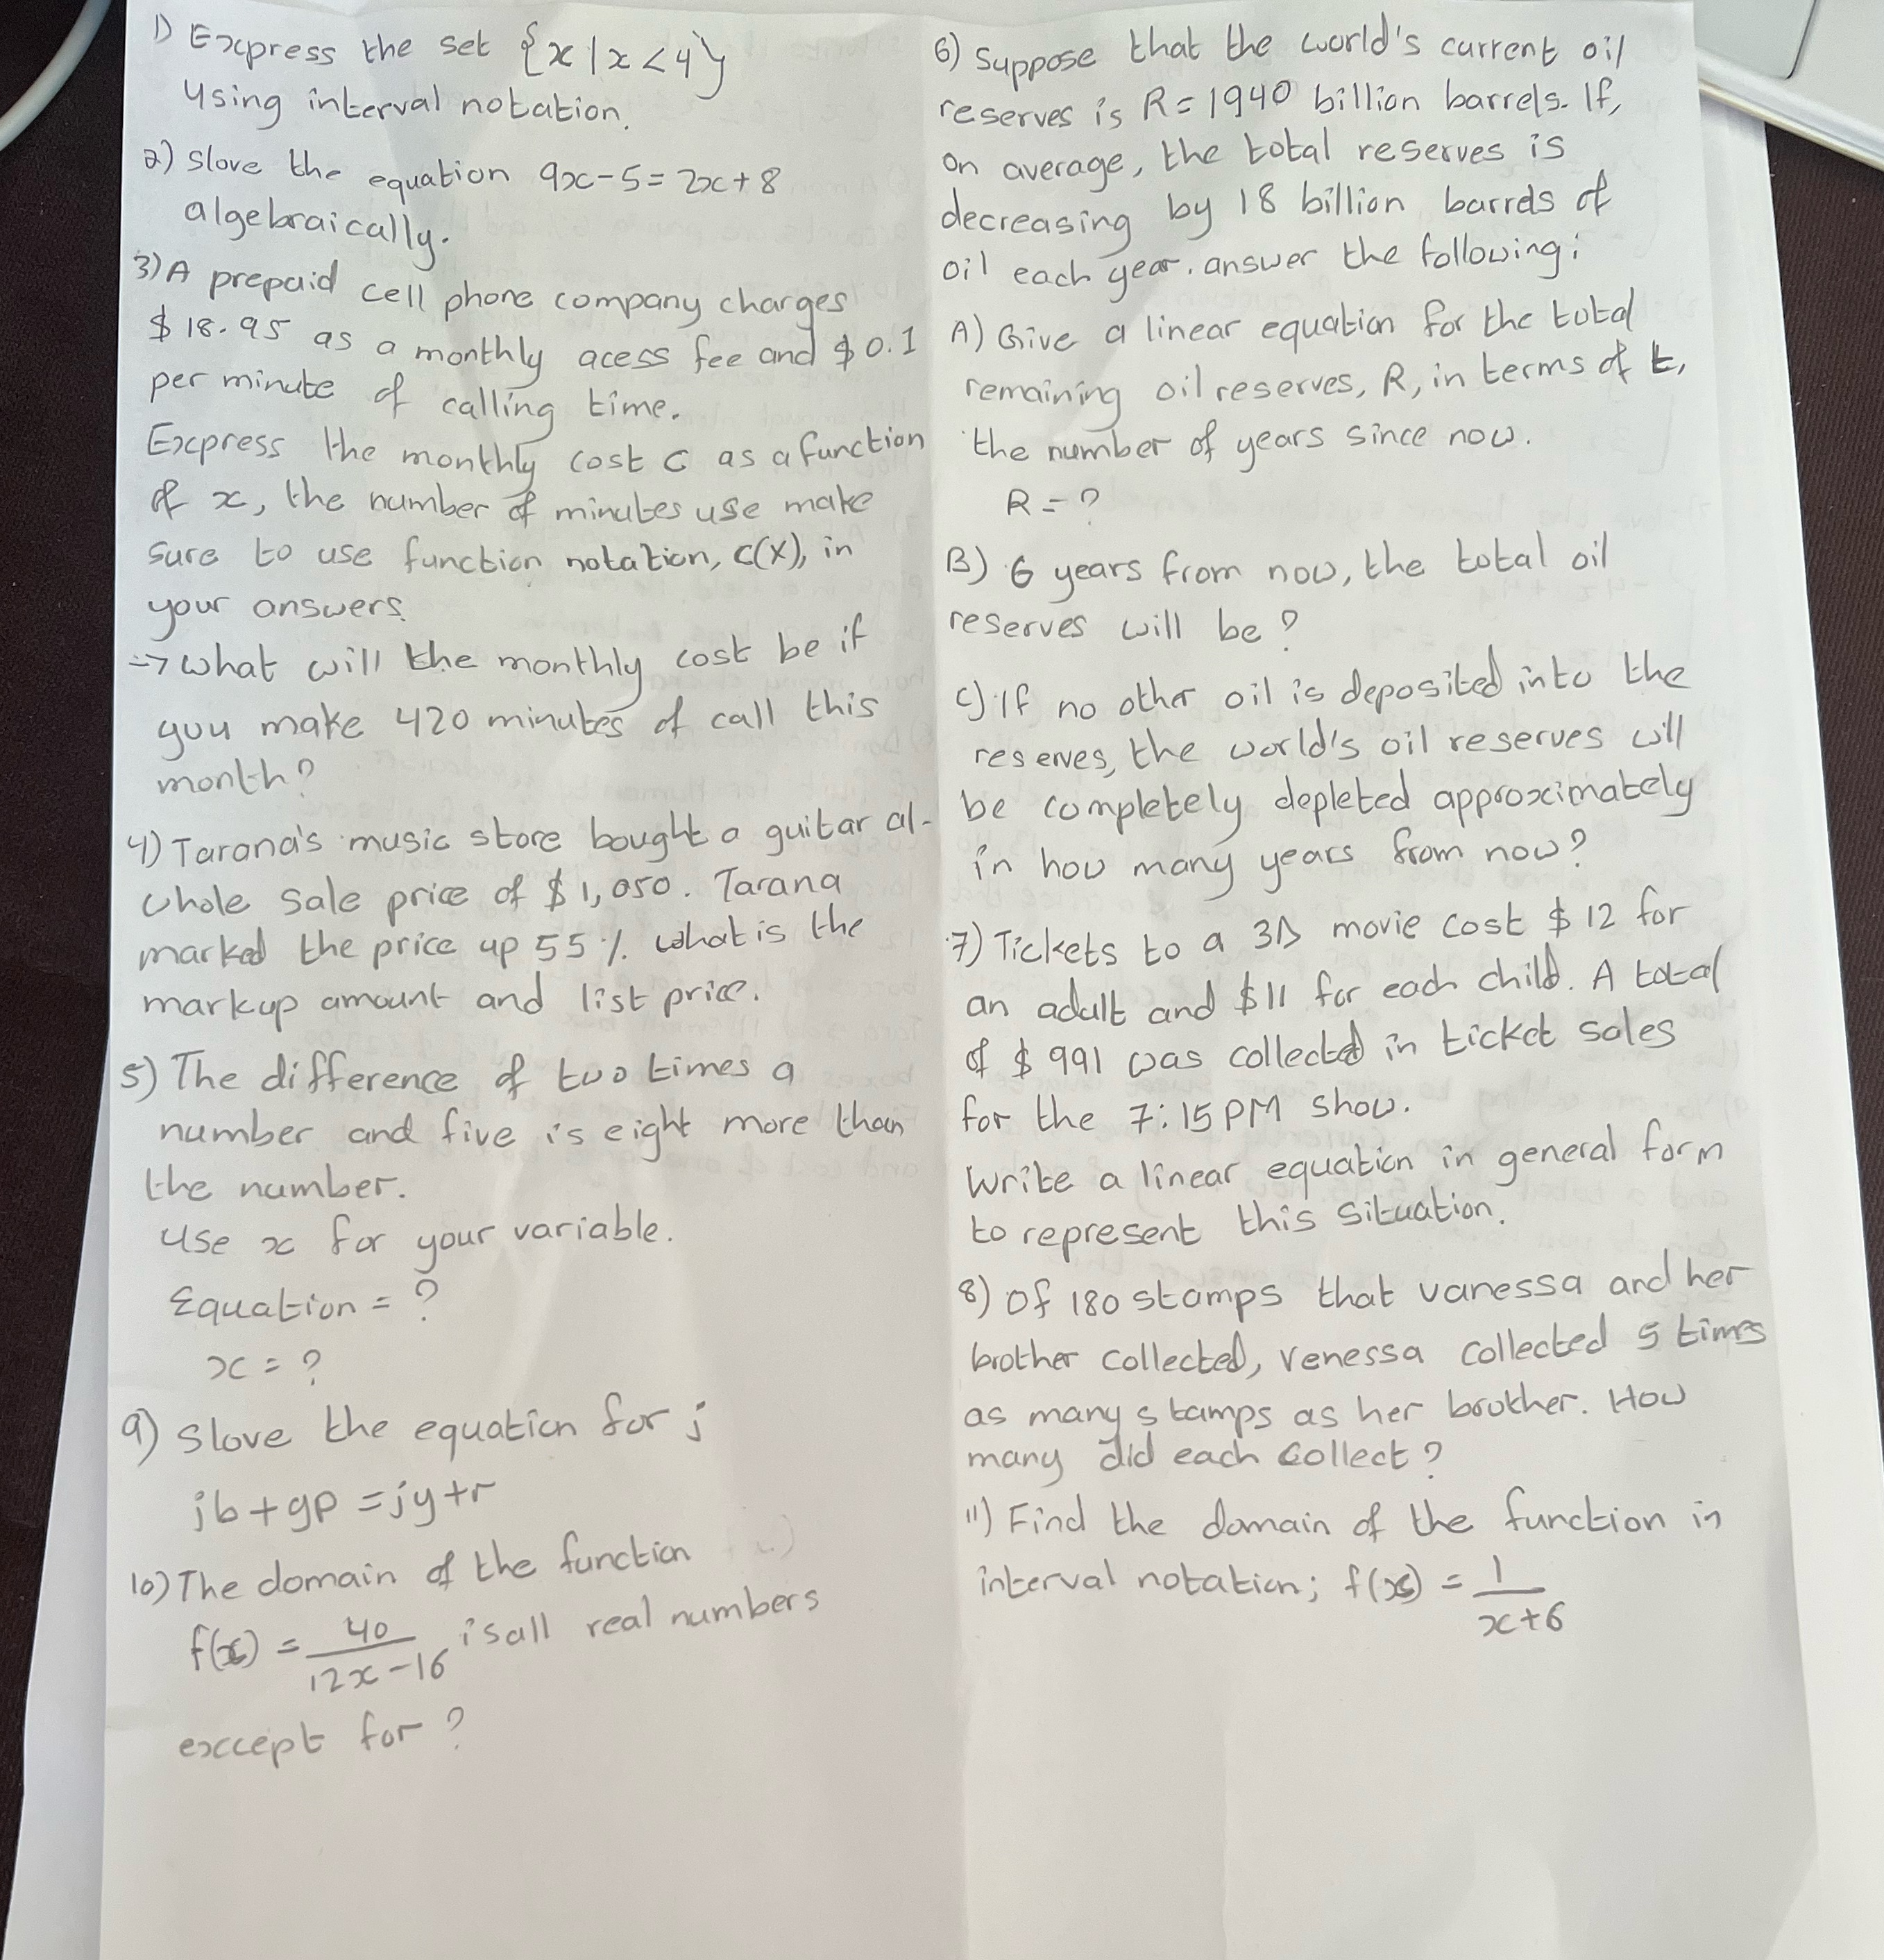 1) Express the set {x|x<4}
Using interval notation.
2) Slove the equation 9x-5=2x+8
algebraically.
3) A prepaid cell phone company charges
$18.95 as a monthly acess fee and $0.1
per minute of calling time.
Express the monthly cost C as a function
of x, the number of minutes use make
sure to use function notation, C(x), in
your answers.
=> what will the monthly cost be if
you make 420 minutes of call this
month?
4) Tarana's music store bought a guitar al-
whole sale price of $1,050. Tarana
marked the price up 55%. what is the
markup amount and list price.
5) The difference of two times a
number and five is eight more than
the number.
Use x for your variable.
Equation = ?
x = ?
9) Slove the equation for j
jb+gp=jy+r
10) The domain of the function
f(x) = 40/12x-16, is all real numbers
except for ?
6) Suppose that the world's current oil
reserves is R=1940 billion barrels. If,
on average, the total reserves is
decreasing by 18 billion barrels of
oil each year. answer the following:
A) Give a linear equation for the total
remaining oil reserves, R, in terms of t,
the number of years since now.
R = ?
B) 6 years from now, the total oil
reserves will be ?
C) If no other oil is deposited into the
reserves, the world's oil reserves will
be completely depleted approximately
in how many years from now?
7) Tickets to a 3D movie cost $12 for
an adult and $11 for each child. A total
of $991 was collected in ticket sales
for the 7:15PM show.
Write a linear equation in general form
to represent this situation.
8) Of 180 stamps that vanessa and her
brother collected, venessa collected 5 times
as many stamps as her brother. How
many did each collect?
11) Find the domain of the function in
interval notation; f(x) = 1/x+6